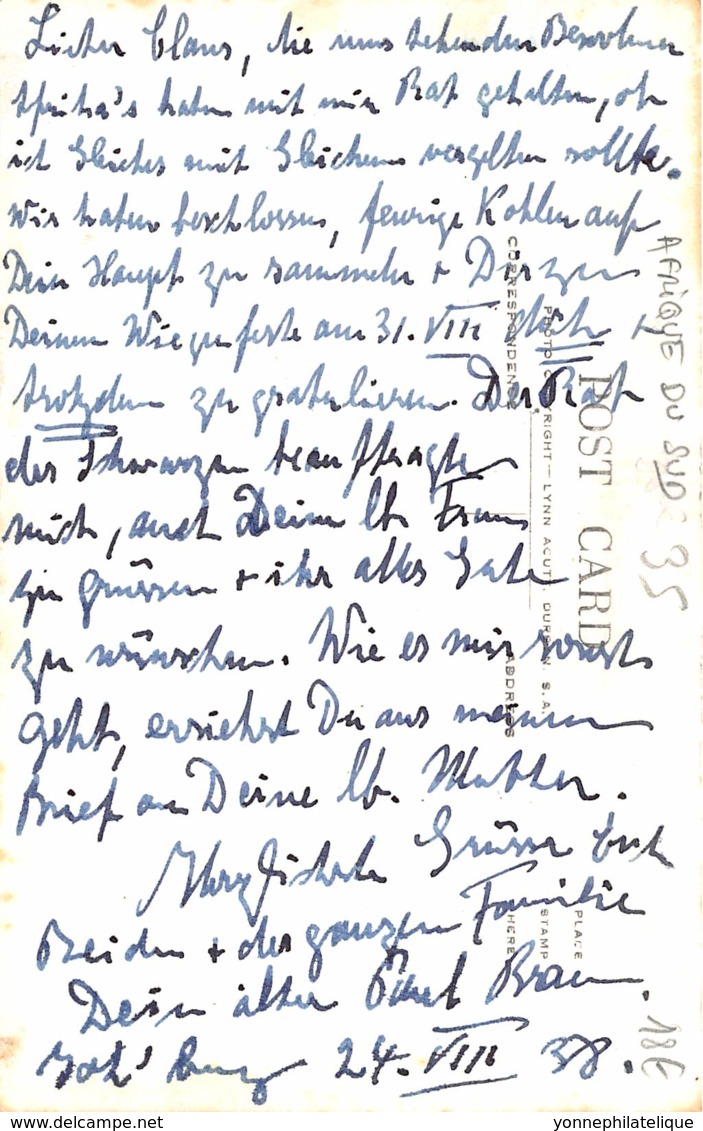 Lieber Claus, die umstehenden Bewohner
Afrika's haben mit mir Rat gehalten, ob
ich Gleiches mit Gleichem vergelten sollte.
Wir haben beschlossen, feurige Kohlen auf
Dein Haupt zu sammeln + Dir zu
Deinem Wiegenfeste am 31. VIII
trotzdem zu gratulieren. Der Rat
der Schwarzen beauftragte
mich, auch Deine lb. Frau
zu grüssen + ihr alles Gute
zu wünschen. Wie es mir sonst
geht, ersiehst Du aus meinem
Brief an Deine lb. Mutter.
Herzlichste Grüsse Euch
Beiden + der ganzen Familie
Dein alter Braun.
Joh'burg 24. VIII 38.
POST CARD
PHOTO COPYRIGHT — LYNN ACUTT, DURBAN, S.A.
CORRESPONDENCE
ADDRESS
PLACE
STAMP
HERE
AFRIQUE DU SUD
35
18€
yonnephilatelie.com